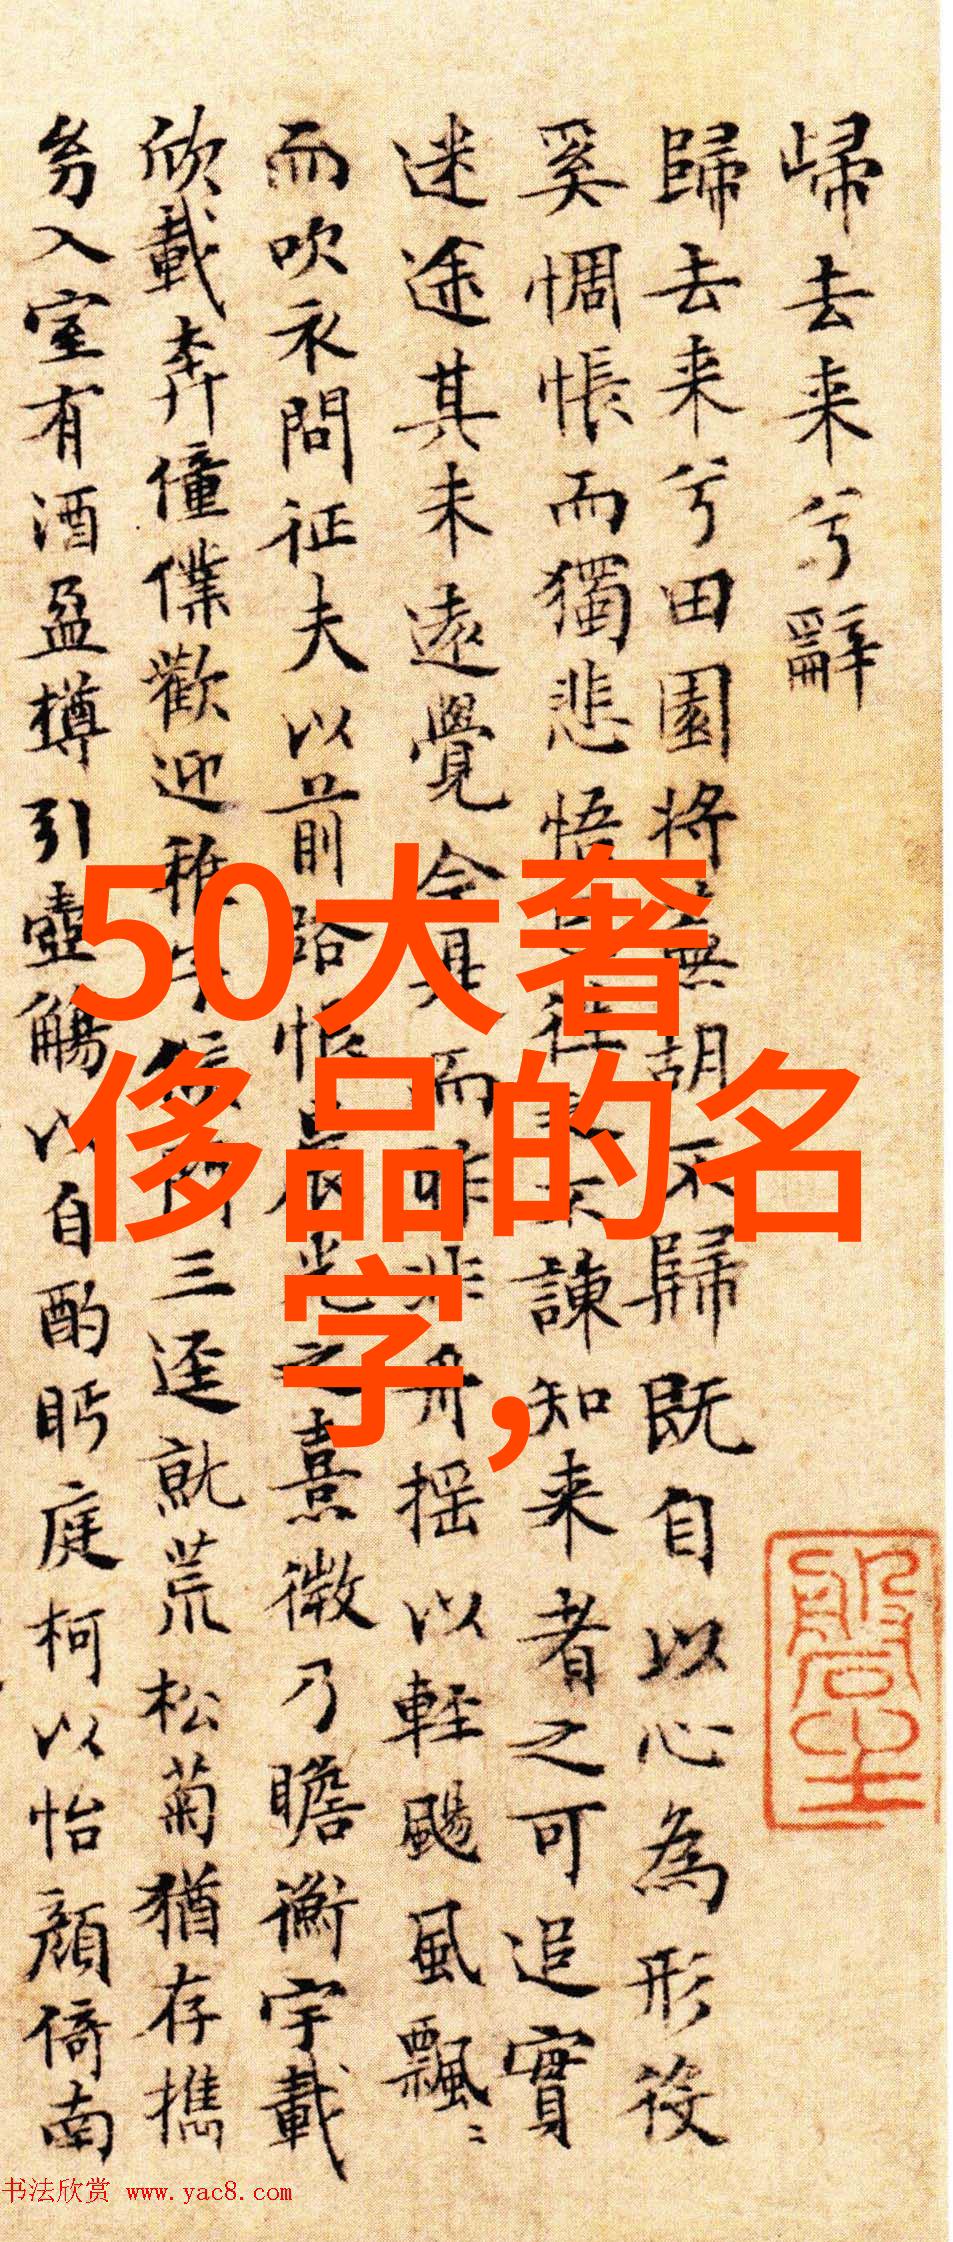 歸去来兮辭
歸去来兮田園将蕪胡不歸既自以心為形役
奚惆悵而獨悲悟已往之不諫知来者之可追實
迷途其未遠覺今是而昨非舟揺以軽颺風飄〻
而吹衣問征夫以前路恨晨光之熹微乃瞻衡宇載
欣載奔僮僕歡迎稚子候門三逕就荒松菊猶存携
幼入室有酒盈樽引壺觴以自酌眄庭柯以怡顔倚南
50大奢
侈品的名
字,
书法欣赏 www.yac8.com